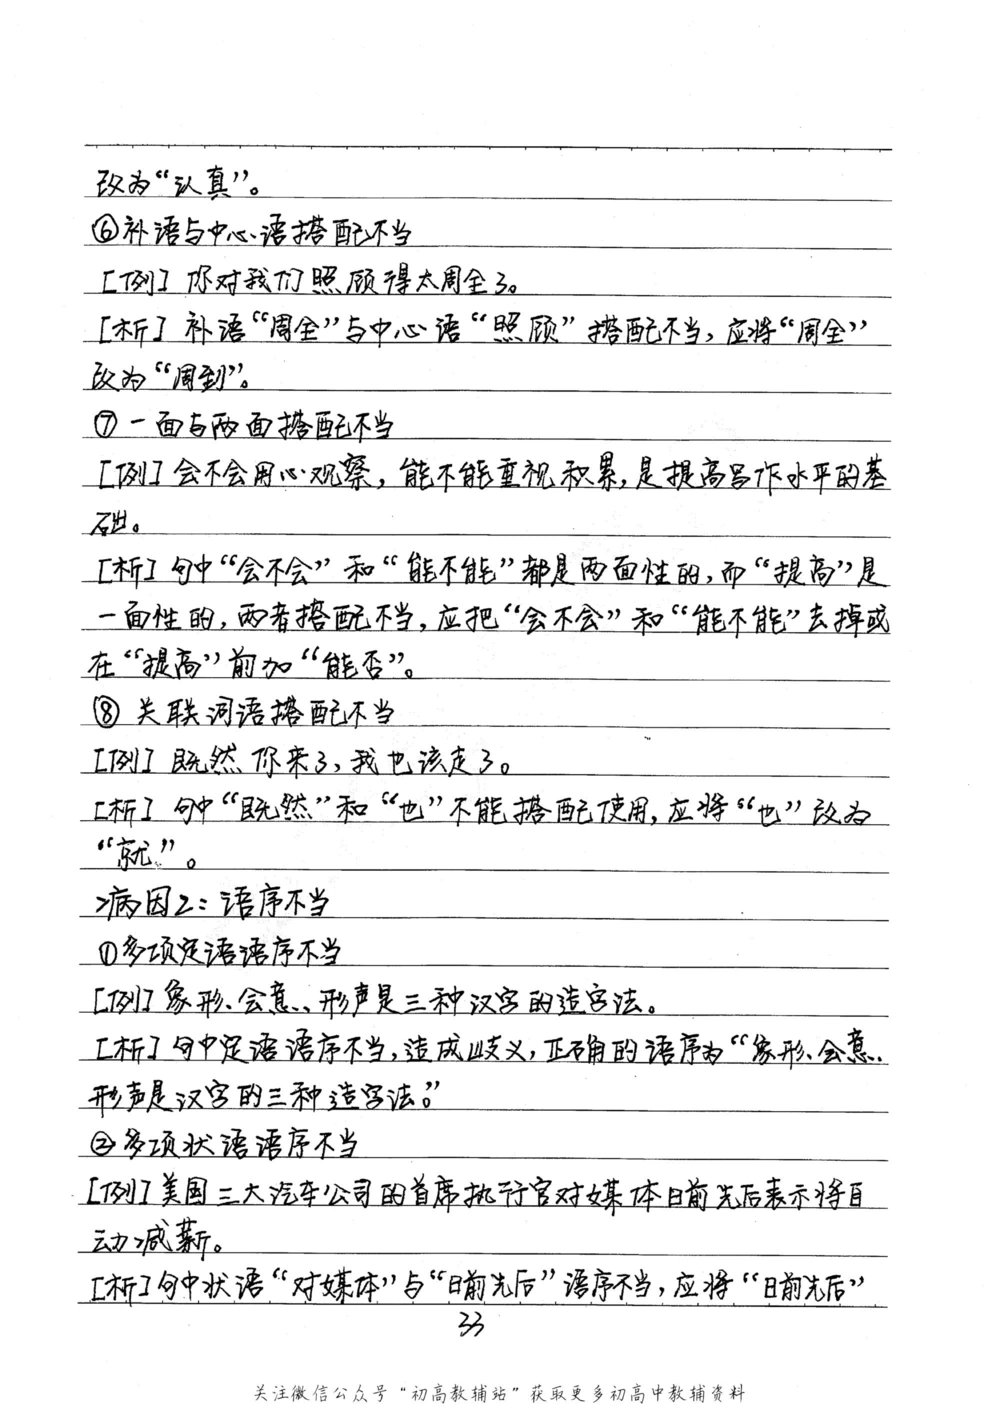 改为“认真”。
⑥补语与中心语搭配不当
[例] 你对我们照顾得太周全了。
[析] 补语“周全”与中心语“照顾”搭配不当,应将“周全”
改为“周到”。
⑦一面与两面搭配不当
[例] 会不会用心观察,能不能重视积累,是提高写作水平的基
础。
[析] 句中“会不会”和“能不能”都是两面性的,而“提高”是
一面性的,两者搭配不当,应把“会不会”和“能不能”去掉或
在“提高”前加“能否”。
⑧关联词语搭配不当
[例] 既然你来了,我也该走了。
[析] 句中“既然”和“也”不能搭配使用,应将“也”改为
“就”。
病因2:语序不当
①多项定语语序不当
[例] 象形、会意、形声是三种汉字的造字法。
[析] 句中定语语序不当,造成歧义,正确的语序为“象形、会意、
形声是汉字的三种造字法。”
②多项状语语序不当
[例] 美国三大汽车公司的首席执行官对媒体日前先后表示将自
动减薪。
[析] 句中状语“对媒体”与“日前先后”语序不当,应将“日前先后”
33
关注微信公众号“初高教辅站”获取更多初高中教辅资料